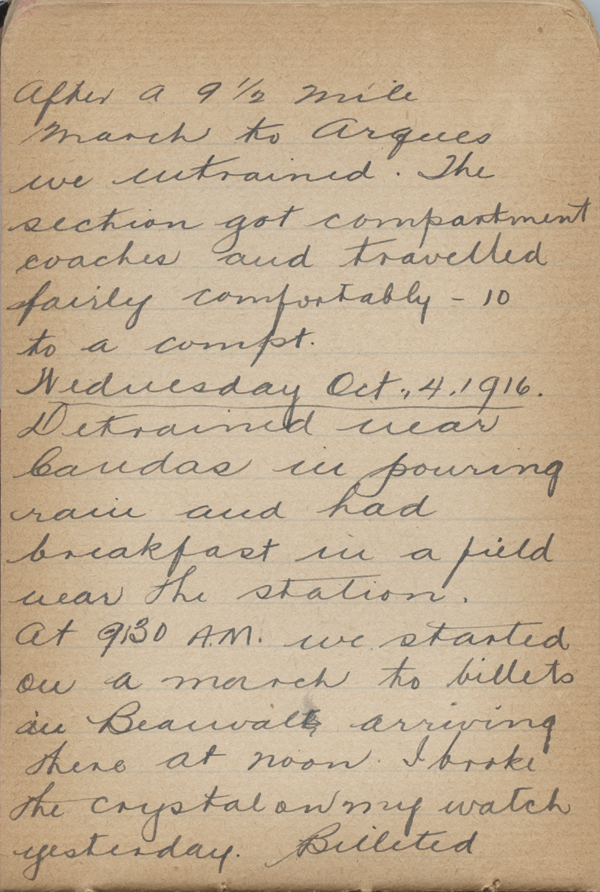 After a 9 1/2 mile
march to Arques
we entrained. The
section got compartment
coaches and travelled
fairly comfortably - 10
to a compt.
Wednesday Oct., 4, 1916.
Detrained near
Candas in pouring
rain and had
breakfast in a field
near the station.
At 9:30 A.M. we started
on a march to billets
in Beauval arriving
there at noon. I broke
the crystal on my watch
yesterday. Billeted